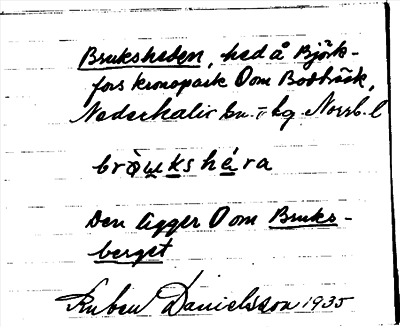 Bruksheden, hed å Björk-
fors kronopark O om Bodträsk,
Nederkalix sn. = hg Norrb. l
bròu̯kshéra
Den ligger O om Bruks-
berget
Ruben Danielsson 1935